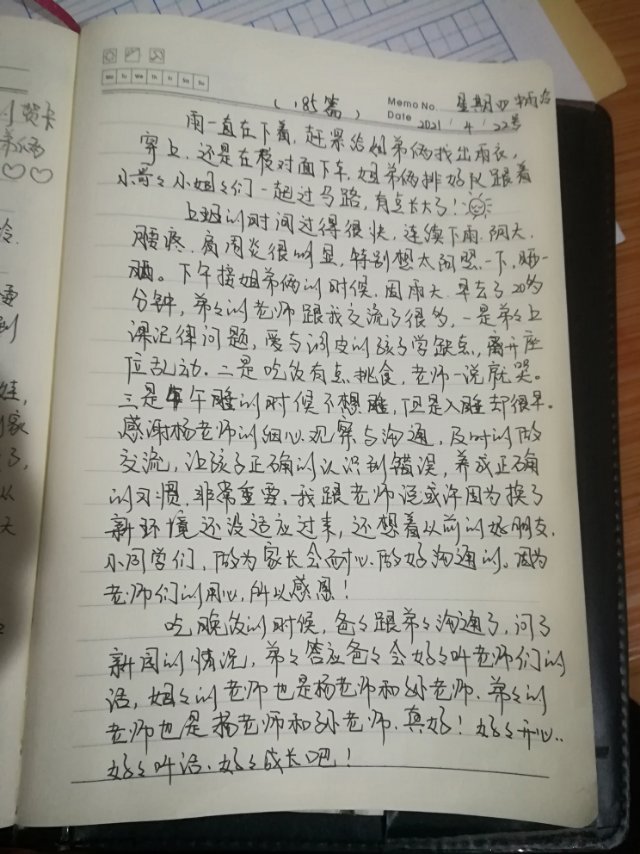 Mo Tu We Th Fr Sa Su
(185篇)
Memo No. 星期四 
Date 2021/4/22号
雨一直在下着,赶紧给姐弟俩找出雨衣,
穿上,还是在校对面下车,姐弟俩排好队跟着
小哥々小姐々们一起过马路,有点长大了!
上班的时间过得很快,连续下雨.阴天,
腰疼.肩周炎很明显,特别想太阳照一下,晒一
晒。下午接姐弟俩的时候.因雨天.早去了20多
分钟,弟々的老师跟我交流了很多,一是弟々上
课纪律问题,爱与调皮的孩子学缺点,离开座
位乱动.二是吃饭有点挑食,老师一说就哭。
三是午睡的时候不想睡,但是入睡却很早。
感谢杨老师的细心观察与沟通,及时的做
交流,让孩子正确的认识到错误,养成正确
的习惯.非常重要.我跟老师说或许因为换了
新环境还没适应过来,还想着以前的好朋友.
小同学们,做为家长会耐心.做好沟通的。因为
老师们的用心,所以感恩!
吃晚饭的时候,爸々跟弟々沟通了,问了
新园的情况,弟々答应爸々会好々听老师们的
话,姐々的老师也是杨老师和孙老师.弟々的
老师也是杨老师和孙老师.真好!好々开心..
好々听话.好々成长吧!
贺卡
弟俩